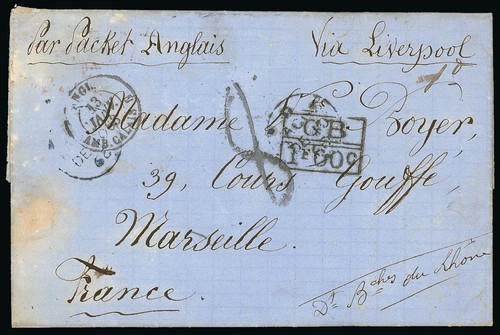 Par Packet Anglais Via Liverpool
ANGL.
13
JANV
AMB. CALAIS
GB
1F60c
8
Madame Royer,
39, Cours Gouffé,
Marseille.
France.
Dt. Bches du Rhône